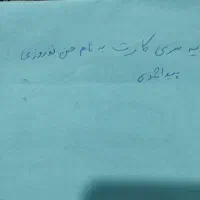 یه سری کارت به نام حسن نوروزی
پیدا شده